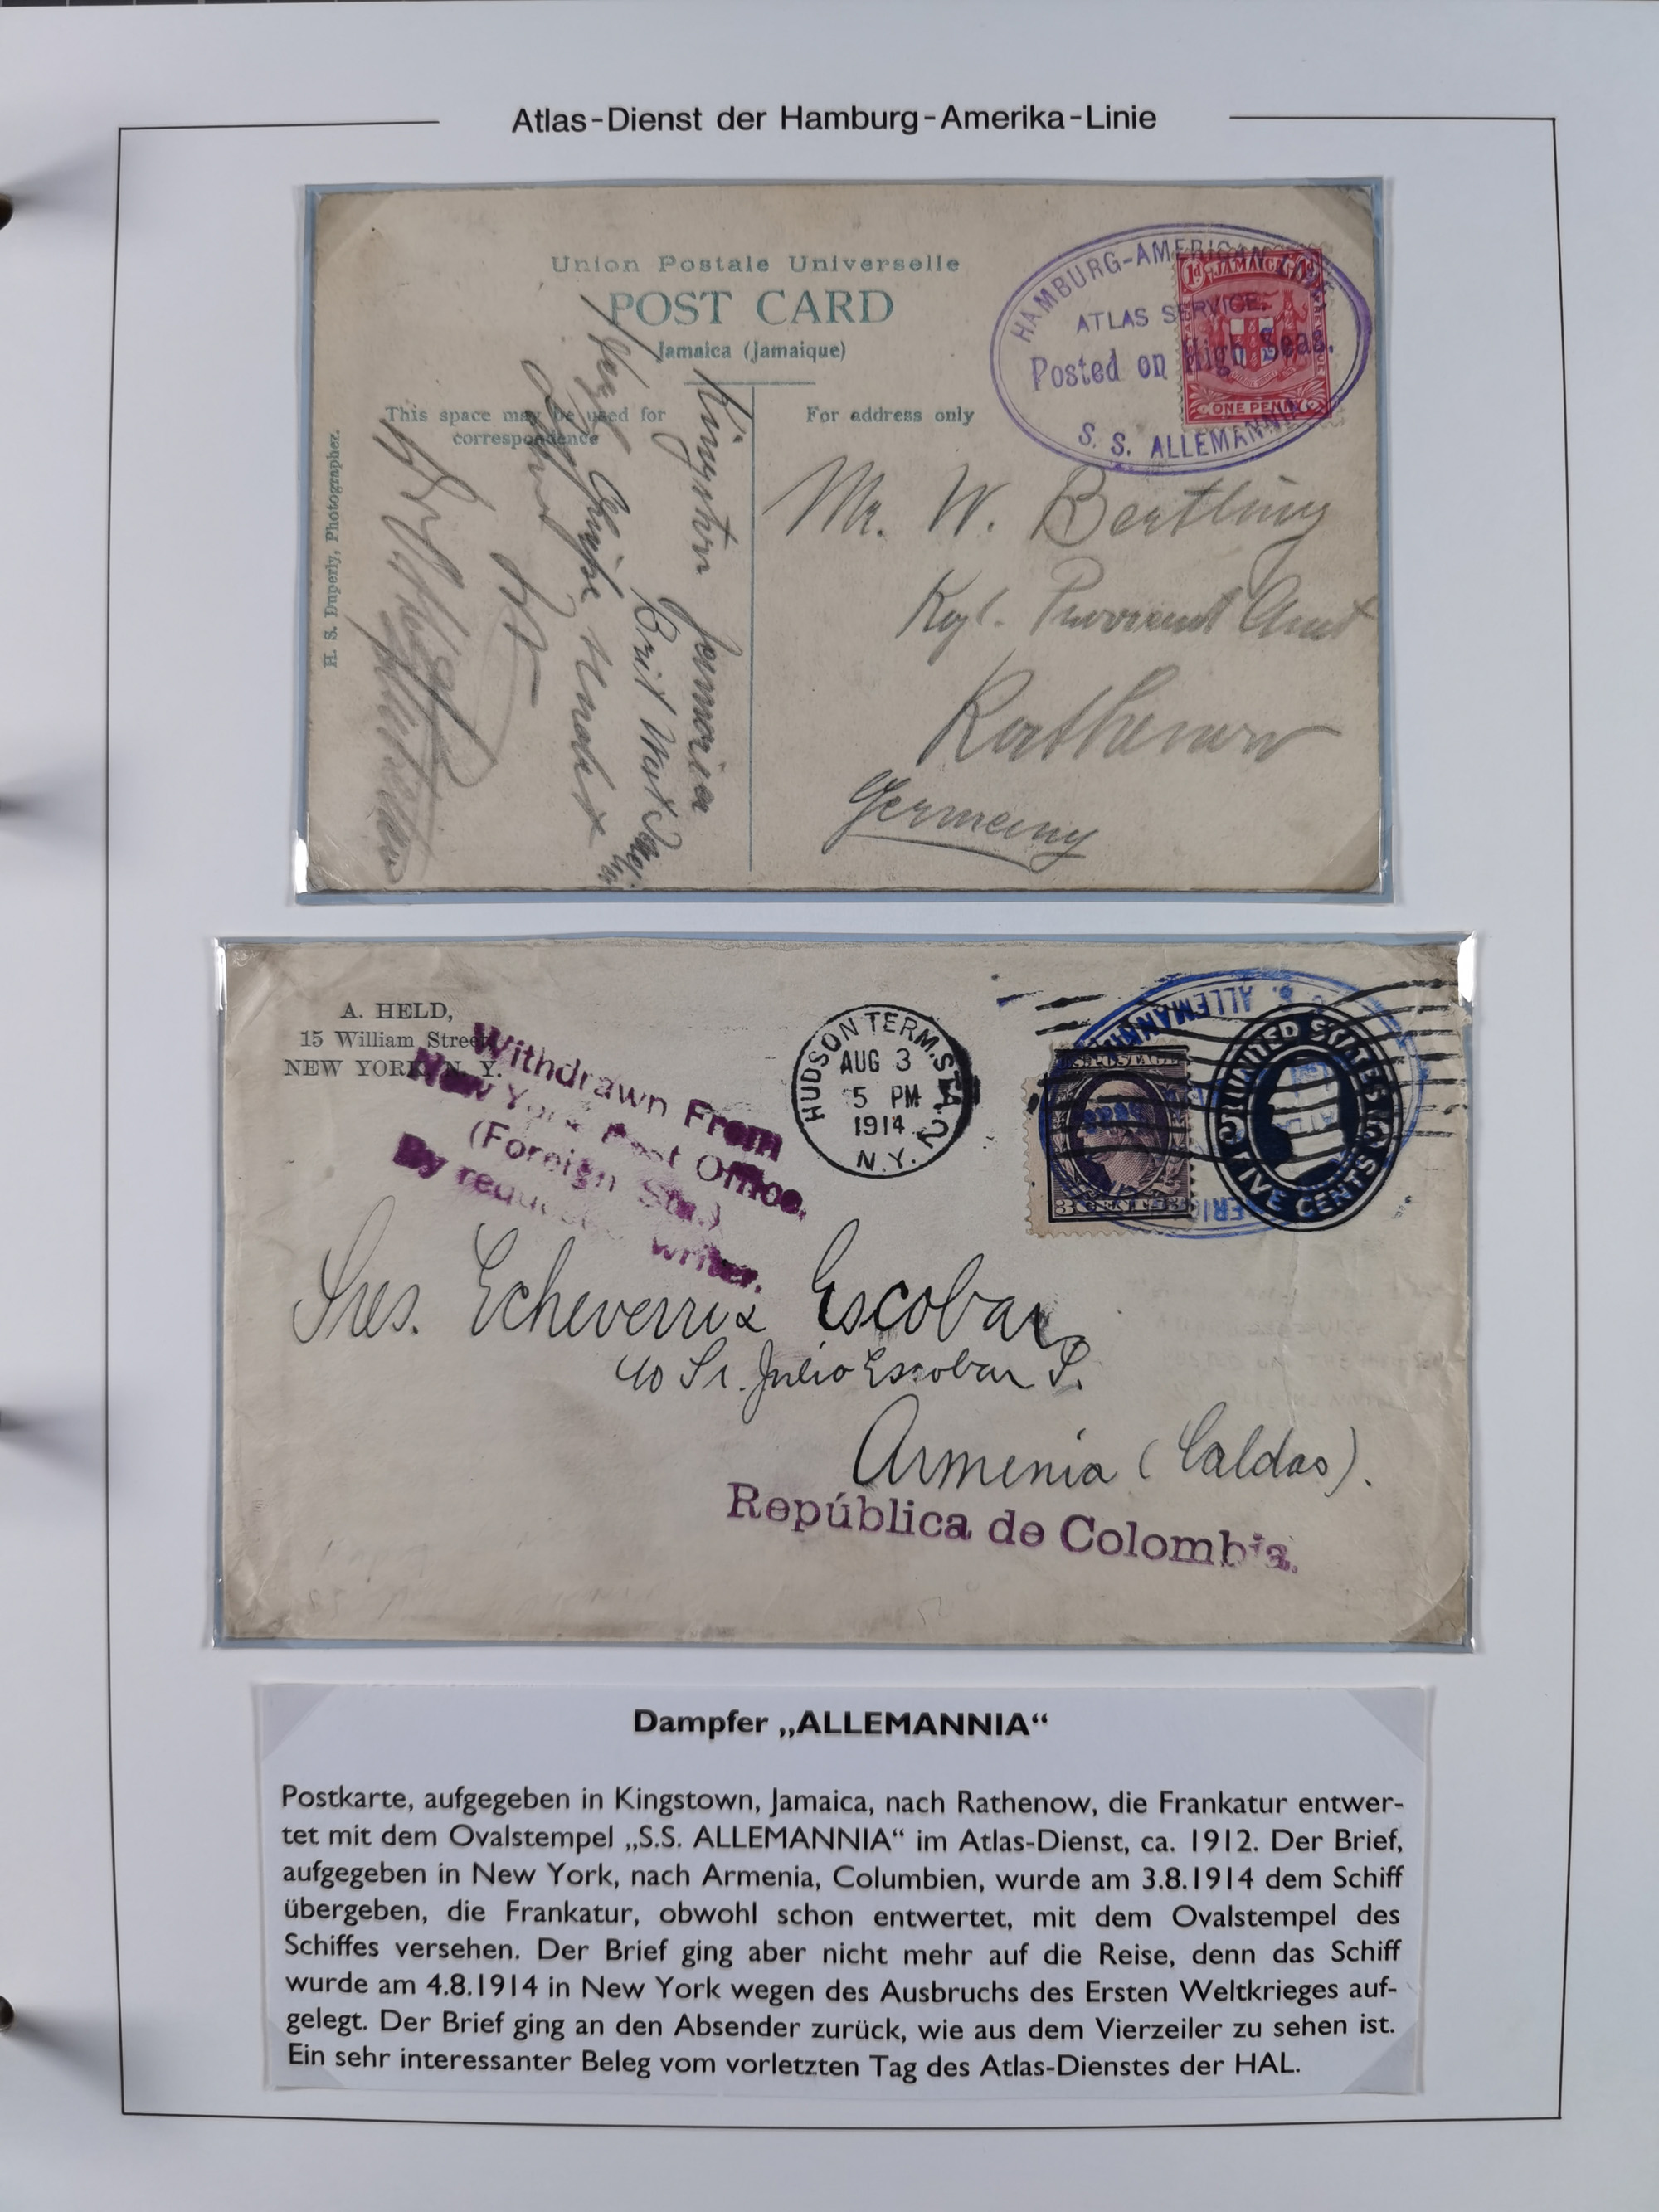 Atlas-Dienst der Hamburg-Amerika-Linie
Union Postale Universelle
POST CARD
Jamaica (Jamaique)
This space may be used for
correspondence
For address only
H. S. Duperly, Photographer.
HAMBURG-AMERICAN LINE
ATLAS SERVICE.
Posted on High Seas.
S. S. ALLEMANNIA
1d JAMAICA 1d
ONE PENNY
Mr. W. Bertling
Kgl. Proviant Amt
Rathenow
Germany
Kingston Jamaica
Brit West
A. HELD,
15 William Street
NEW YORK, N. Y.
Withdrawn From
New York Post Office.
(Foreign Sta.)
By request writer.
HUDSON TERM. STA.
AUG 3
5 PM
1914
N.Y. 2
S. S. ALLEMANNIA
U.S. POSTAGE
3 CENTS 3
UNITED STATES
FIVE CENTS
Sres. Echeverria Escobar
c/o Sr. Julio Escobar P.
Armenia (Caldas).
República de Colombia.
Dampfer „ALLEMANNIA“
Postkarte, aufgegeben in Kingstown, Jamaica, nach Rathenow, die Frankatur entwer-
tet mit dem Ovalstempel „S.S. ALLEMANNIA“ im Atlas-Dienst, ca. 1912. Der Brief,
aufgegeben in New York, nach Armenia, Columbien, wurde am 3.8.1914 dem Schiff
übergeben, die Frankatur, obwohl schon entwertet, mit dem Ovalstempel des
Schiffes versehen. Der Brief ging aber nicht mehr auf die Reise, denn das Schiff
wurde am 4.8.1914 in New York wegen des Ausbruchs des Ersten Weltkrieges auf-
gelegt. Der Brief ging an den Absender zurück, wie aus dem Vierzeiler zu sehen ist.
Ein sehr interessanter Beleg vom vorletzten Tag des Atlas-Dienstes der HAL.